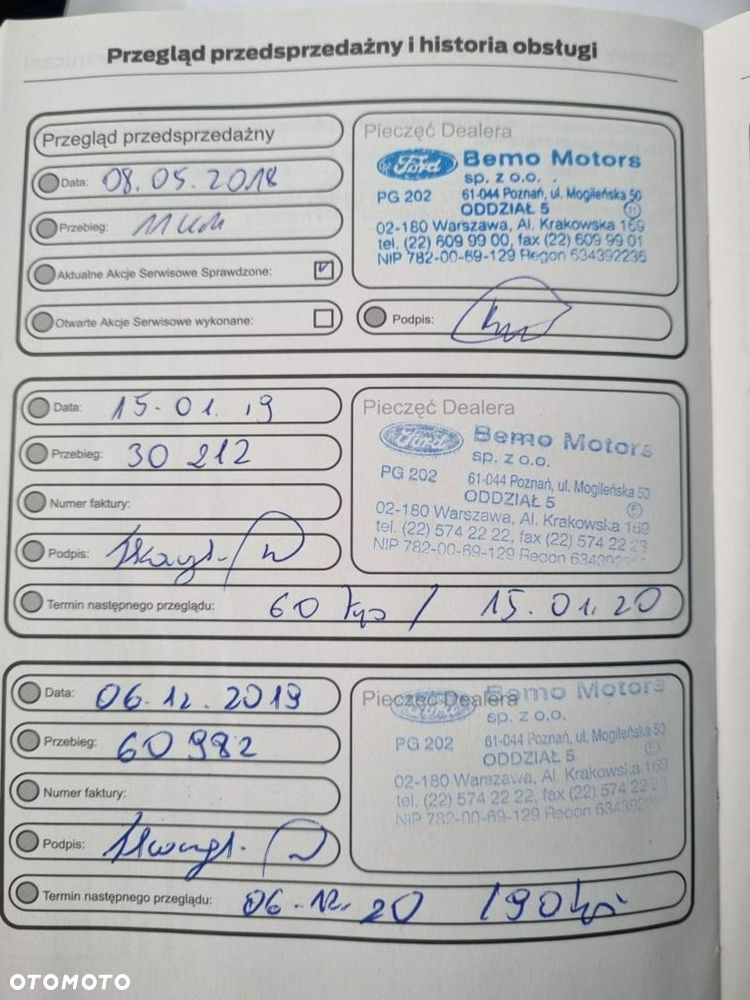 Przegląd przedsprzedażny i historia obsługi
Przegląd przedsprzedażny
Data: 08.05.2018
Przebieg: 11 km
Aktualne Akcje Serwisowe Sprawdzone:
Otwarte Akcje Serwisowe wykonane:
Pieczęć Dealera
Ford Bemo Motors
sp. z o.o.
PG 202 61-044 Poznań, ul. Mogileńska 50
ODDZIAŁ 5
02-180 Warszawa, Al. Krakowska 169
tel. (22) 609 99 00, fax (22) 609 99 01
NIP 782-00-69-129 Regon 634392236
Podpis:
Data: 15-01.19
Przebieg: 30 212
Numer faktury:
Podpis:
Pieczęć Dealera
Ford Bemo Motors
sp. z o.o.
PG 202 61-044 Poznań, ul. Mogileńska 50
ODDZIAŁ 5
02-180 Warszawa, Al. Krakowska 169
tel. (22) 574 22 22, fax (22) 574 22 23
NIP 782-00-69-129 Regon
Termin następnego przeglądu: 60 tys / 15.01.20
Data: 06.12.2019
Przebieg: 60 982
Numer faktury:
Podpis:
Pieczęć Dealera
Bemo Motors
sp. z o.o.
PG 202 61-044 Poznań, ul. Mogileńska 50
ODDZIAŁ 5
02-180 Warszawa, Al. Krakowska 169
tel. (22) 574 22 22, fax (22) 574 22
NIP 782-00-69-129 Regon
Termin następnego przeglądu: 06.12.20 / 90 tys
OTOMOTO